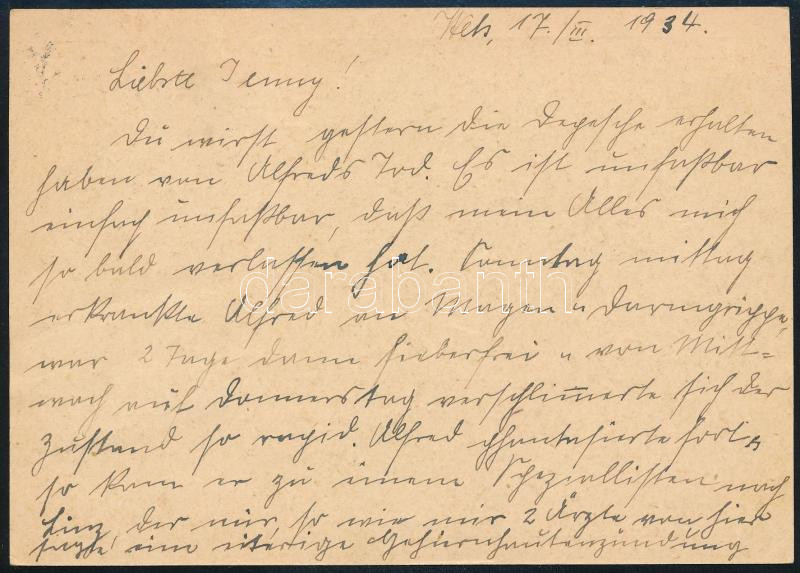 Wels, 17./III. 1934.
Liebste Jenny!
Du wirst gestern die Depesche erhalten
haben von Alfreds Tod. Es ist unfaßbar
einfach unfaßbar, daß mein Alles mich
so bald verlassen hat. Sonntag mittag
darabanth
erkrankte Alfred an Magen u Darmgrippe,
war 2 Tage dann fieberfrei u von Mitt=
woch auf Donnerstag verschlimmerte sich der
Zustand so rapid. Alfred phantasierte fort u
so kam er zu einem Speziallisten nach
Linz, der mir, so wie mir 2 Ärzte von hier
sagte, eine eiterige Gehirnhautenzündung